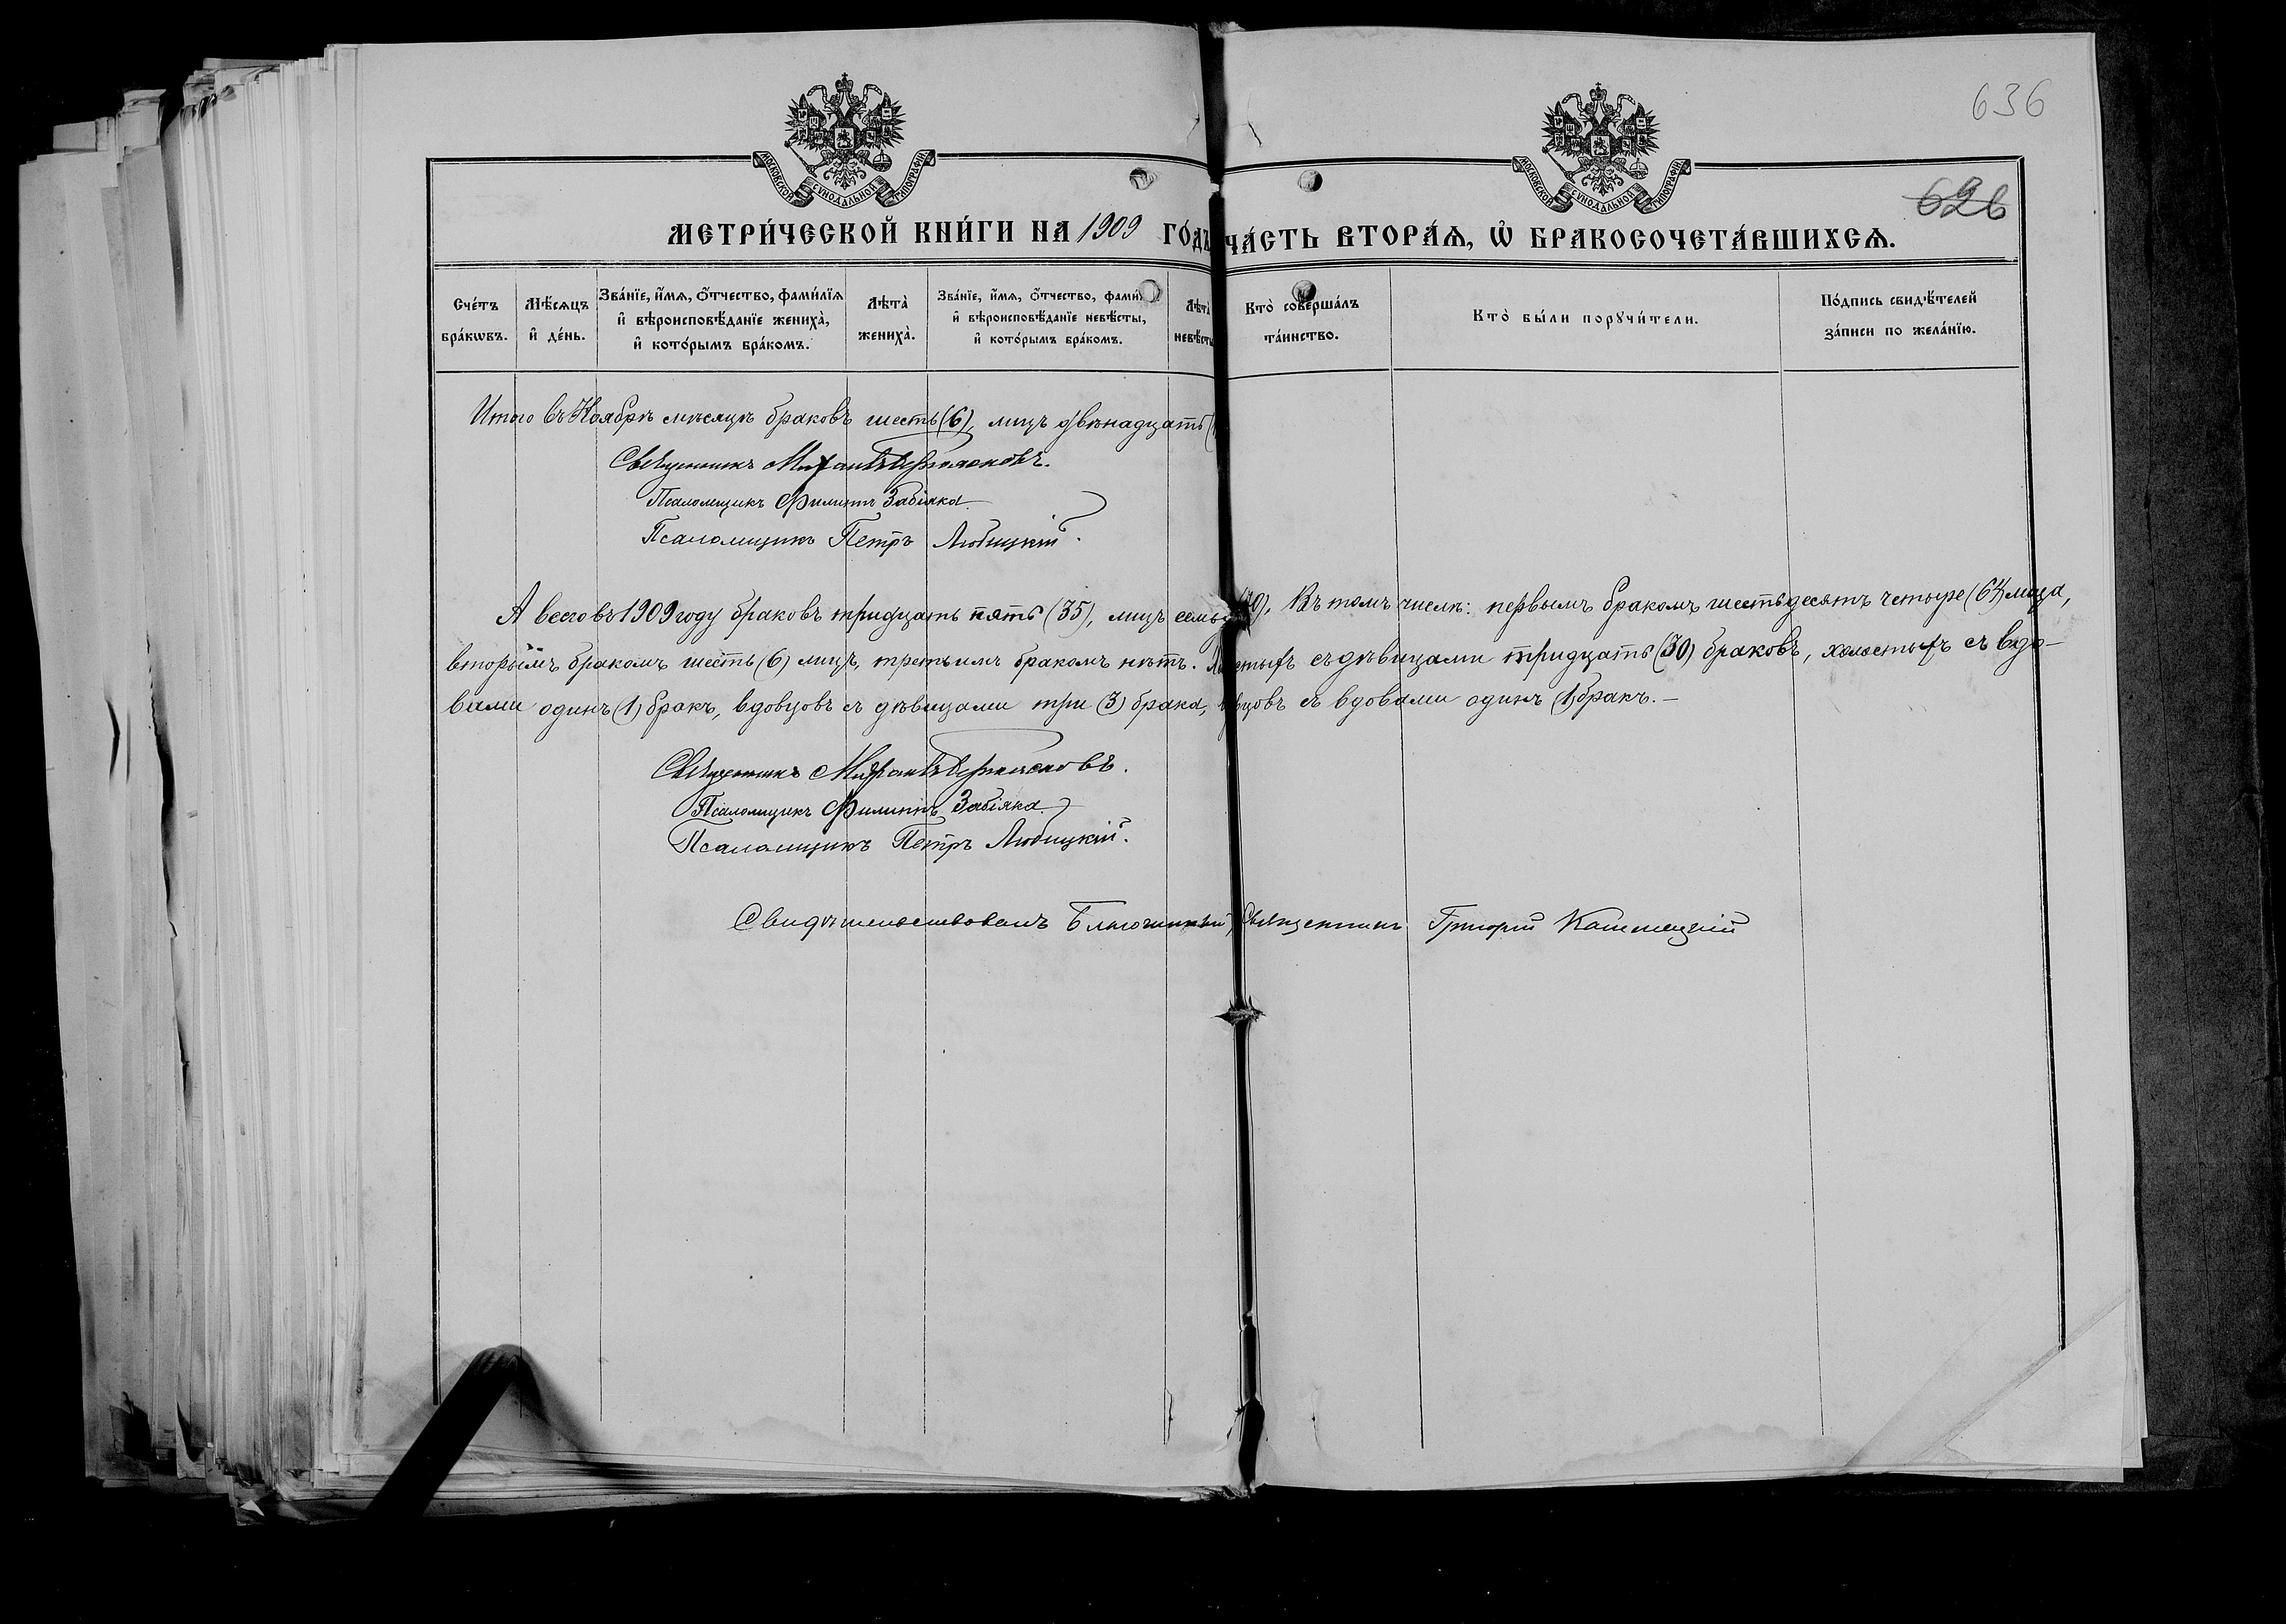 636
626
МОСКОВСКОЙ СѴНОДАЛЬНОЙ ТИПОГРАФІИ
МОСКОВСКОЙ СѴНОДАЛЬНОЙ ТИПОГРАФІИ
МЕТРИ́ЧЕСКОЙ КНИ́ГИ НА 1909 ГО́ДЪ ЧА́СТЬ ВТОРА́Ѧ, Ѽ БРАКОСОЧЕТА́ВШИХСѦ.
Сче́тъ бра́кѡвъ.
Мѣ́сѧцъ и҆ де́нь.
Зва́нїе, и҆́мѧ, ѻ҆́тчество, фами́лїѧ и҆ вѣроисповѣ́данїе жениха̀, и҆ кото́рымъ бра́комъ.
Лѣта̀ жениха̀.
Зва́нїе, и҆́мѧ, ѻ҆́тчество, фами́ и҆ вѣроисповѣ́данїе невѣ́сты, и҆ кото́рымъ бра́комъ.
Лѣта̀ невѣ́сты
Кто̀ соверша́лъ та́инство.
Кто̀ бы́ли порꙋчи́тели.
По́дпись свидѣ́телей за́писи по жела́нїю.
Итого въ Ноябрѣ мѣсяцѣ браковъ шесть (6), лицъ двѣнадцать (
Священникъ
Псаломщикъ Филиппъ Забіяка.
Псаломщикъ Петръ Любицкій.
А всего въ 1909 году браковъ тридцать пять (35), лицъ семьд (70). Въ томъ числѣ: первымъ бракомъ шестьдесятъ четыре (64) лица,
вторымъ бракомъ шесть (6) лицъ, третьимъ бракомъ нѣтъ. Холостыхъ съ дѣвицами тридцать (30) браковъ, холостыхъ съ вдо-
вами одинъ (1) бракъ, вдовцовъ съ дѣвицами три (3) брака, вдовцовъ съ вдовами одинъ (1) бракъ. –
Священникъ
Псаломщикъ Филиппъ Забіяка.
Псаломщикъ Петръ Любицкій.
Свидѣтельствовалъ Благочинный, Священникъ Григорій